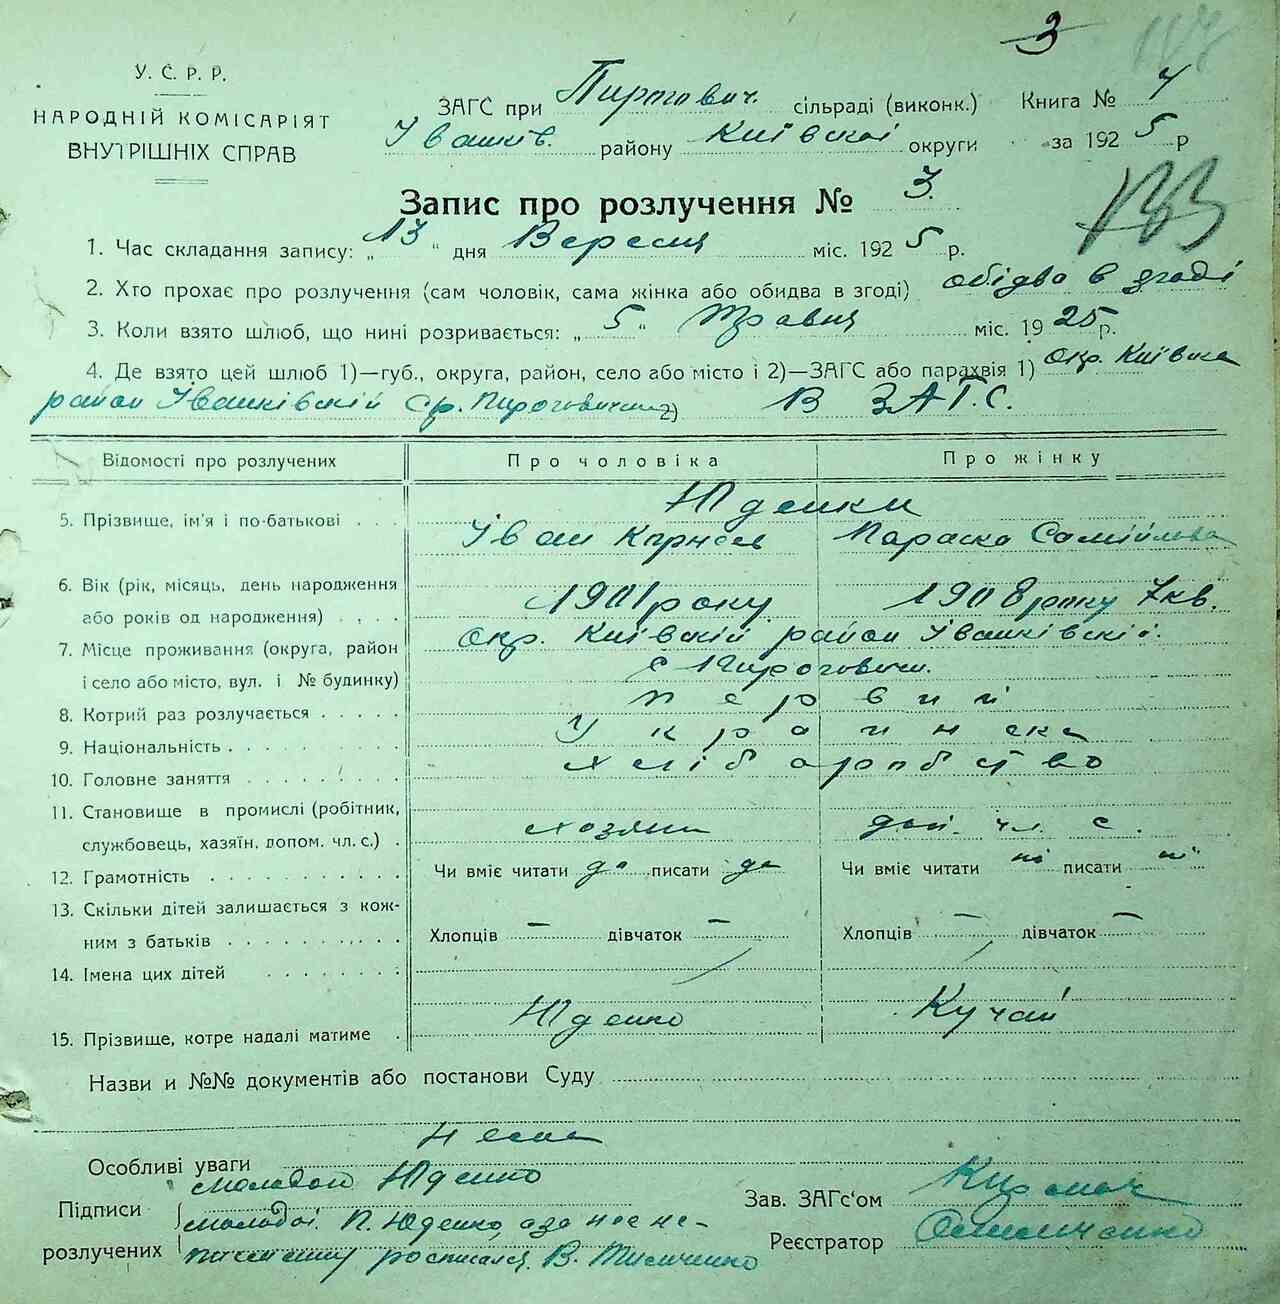 3
У. С. Р. Р.
НАРОДНІЙ КОМІСАРІЯТ
ВНУТРІШНІХ СПРАВ
ЗАГС при Пирогович. сільраді (виконк.) Книга №
Івашків. району Київської округи за 1925 р
Запис про розлучення № 3.
133
1. Час складання запису: „13" дня Вересня міс. 1925 р.
2. Хто прохає про розлучення (сам чоловік, сама жінка або обидва в згоді) обідва в згоді
3. Коли взято шлюб, що нині розривається: „5" Травня міс. 1925 р.
4. Де взято цей шлюб 1)—губ., округа, район, село або місто і 2)—ЗАГС або парахвія 1) окр. Київська
район Івашківскій 2) В ЗАГС.
Відомості про розлучених Про чоловіка Про жінку
Юденки
5. Прізвище, ім'я і по-батькові . . . Іван Параска Самійлова
6. Вік (рік, місяць, день народження
або років од народження) . . . 1901 року 1908 року 7 кв.
7. Місце проживання (округа, район окр. Київскій район Івашківскій.
і село або місто, вул. і № будинку) с Пироговичи.
8. Котрий раз розлучається . . . . . первий
9. Національність . . . . . . . . . Українська
10. Головне заняття . . . . . . . . хліборобство
11. Становище в промислі (робітник,
службовець, хазяїн, допом. чл. с.) . хозяин доп. чл. с.
12. Грамотність . . . . . . . . . . Чи вміє читати да писати да Чи вміє читати ні писати ні
13. Скільки дітей залишається з кож-
ним з батьків . . . . . . . . . . Хлопців — дівчаток — Хлопців — дівчаток —
14. Імена цих дітей . . . . . . .
15. Прізвище, котре надалі матиме . Юденко Кучай
Назви и №№ документів або постанови Суду
Особливі уваги
Підписи молодой Юденко Зав. ЗАГс'ом
розлучених молодої П. Юденко, а за нее не- Реєстратор
росписался В.